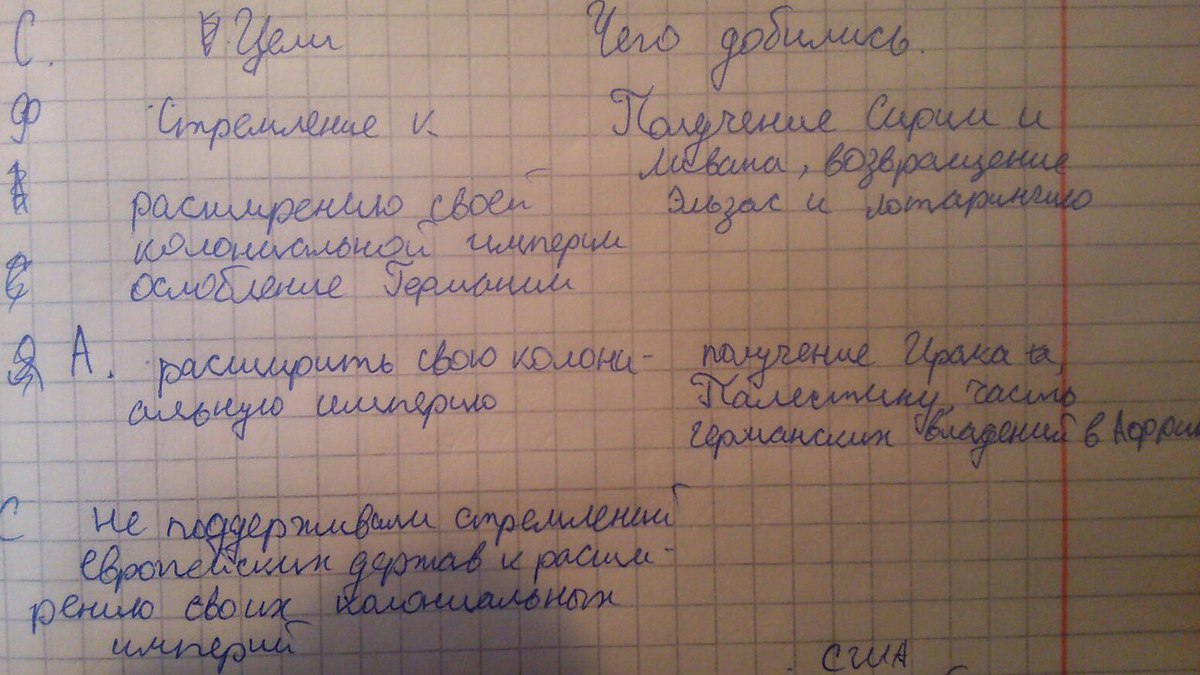 С. Цели Чего добились.
Ф Стремление к Получение Сирии и
Ливана, возвращение
расширению своей Эльзас и лотарингию
колониальной империи
ослобление Германии
А. расширить свою колони- получение Ирака,
альную империю Палестину, часть
германских владений в Африк
С не поддерживали стремлений
европейских держав к расши-
рению своих колониальных
империй
США